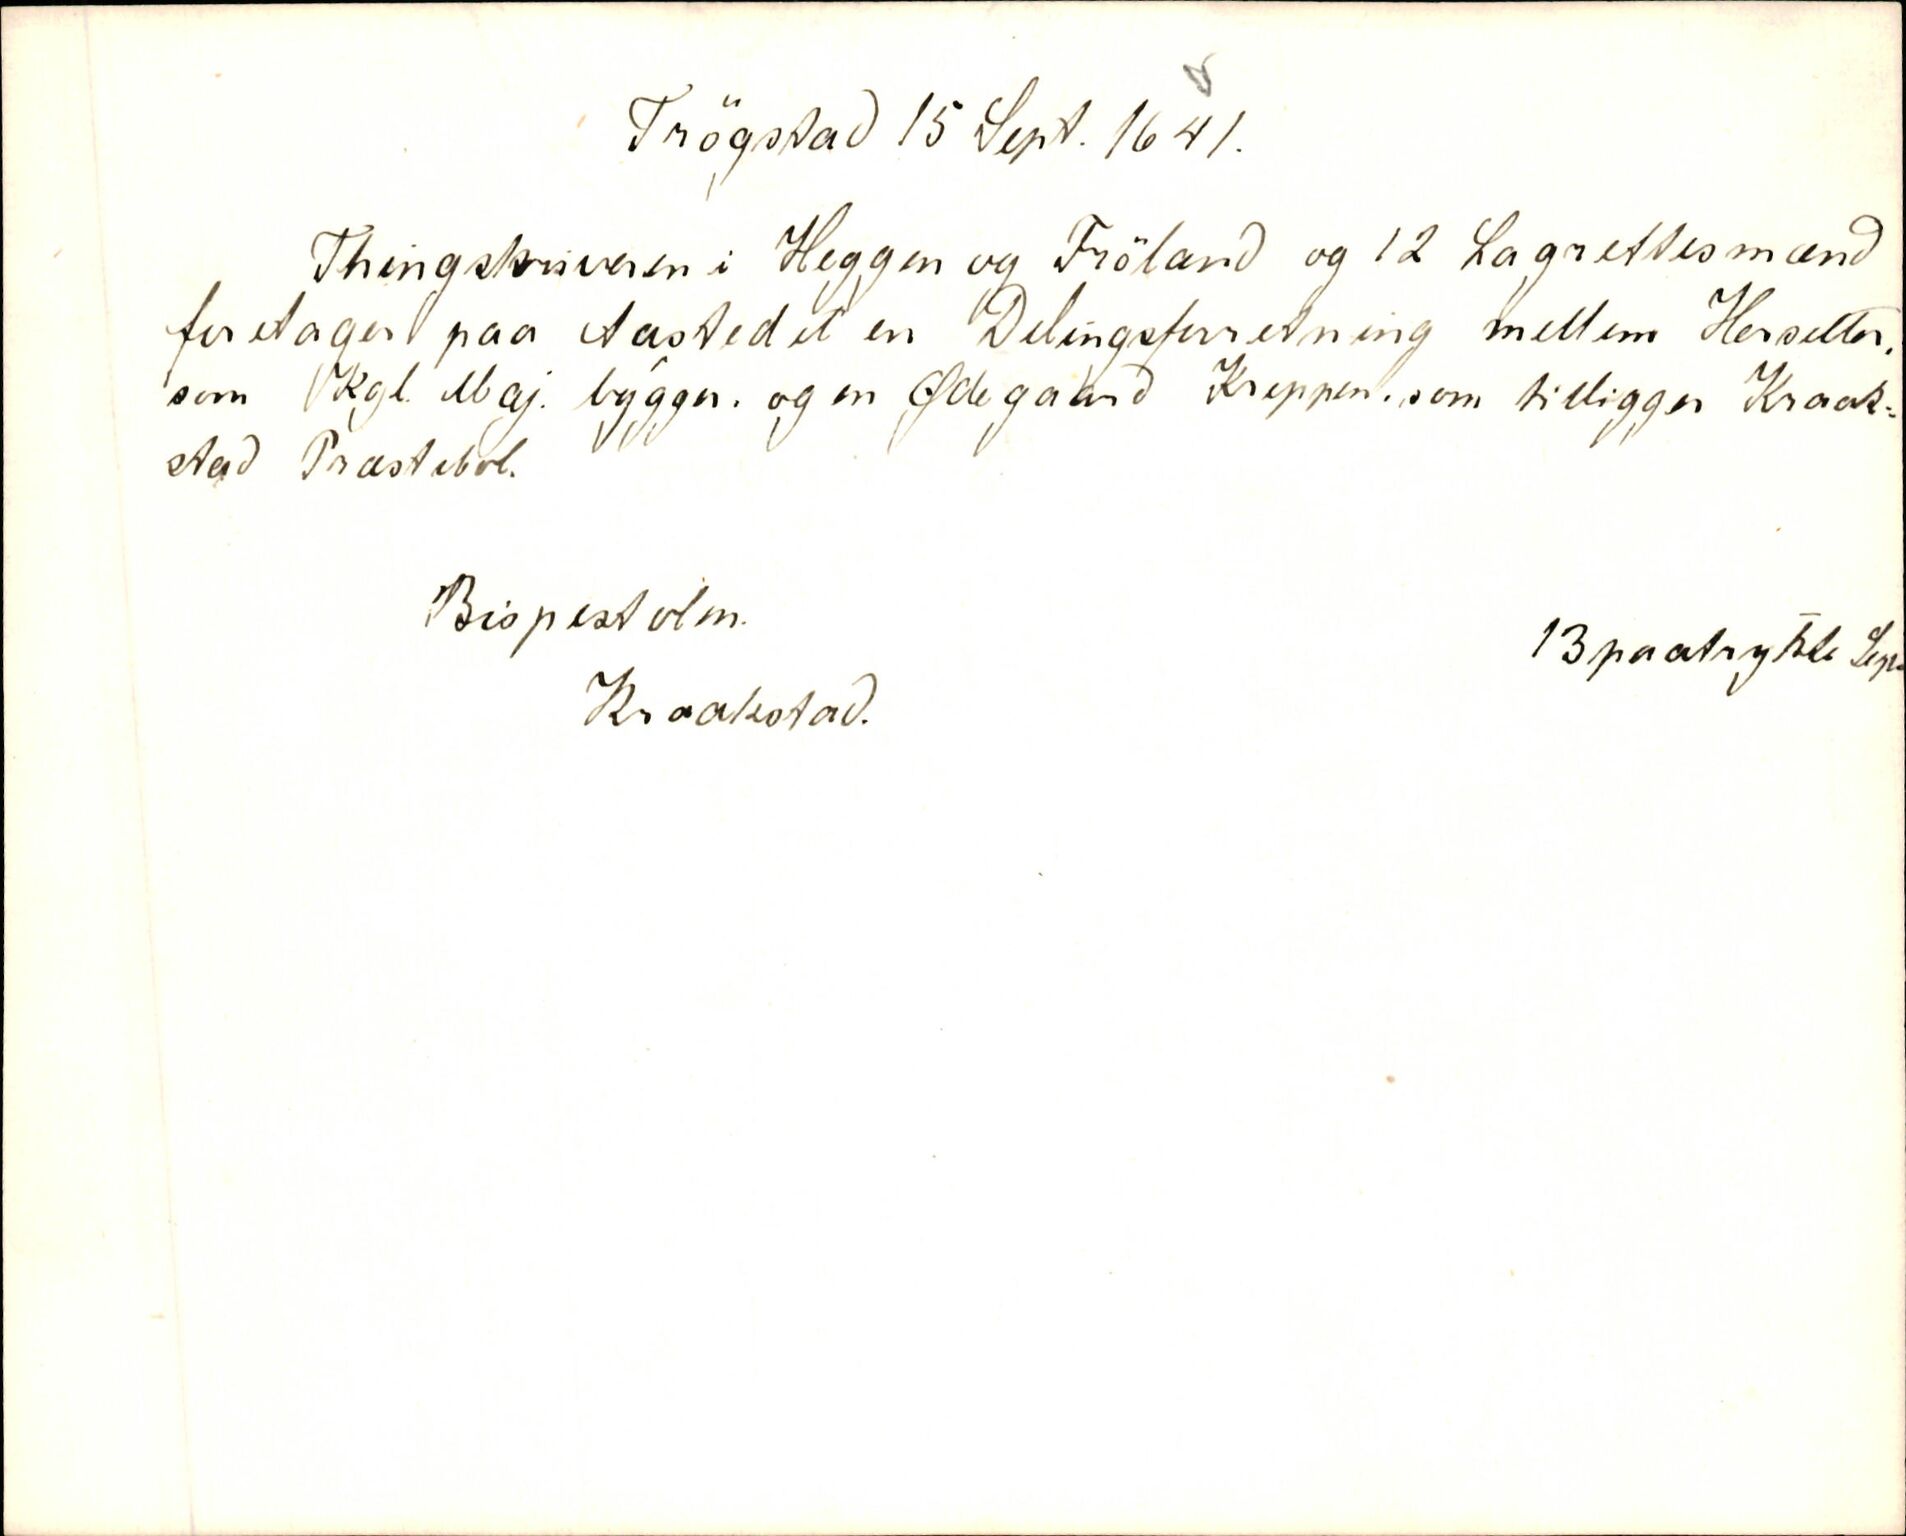 Trögstad 15 Sept. 1641.
Thingskriveren i Heggen og Fröland og 12 Lagrettesmænd
foretager paa Aastedet en Delingsforretning mellem Hersetter,
som Kgl. Maj. bygger, og en Ødegaard Kreppen, som tilligger Kraak-
stad Præstebol.
Bispestolen.
13 paatrykte
Kraakstad.